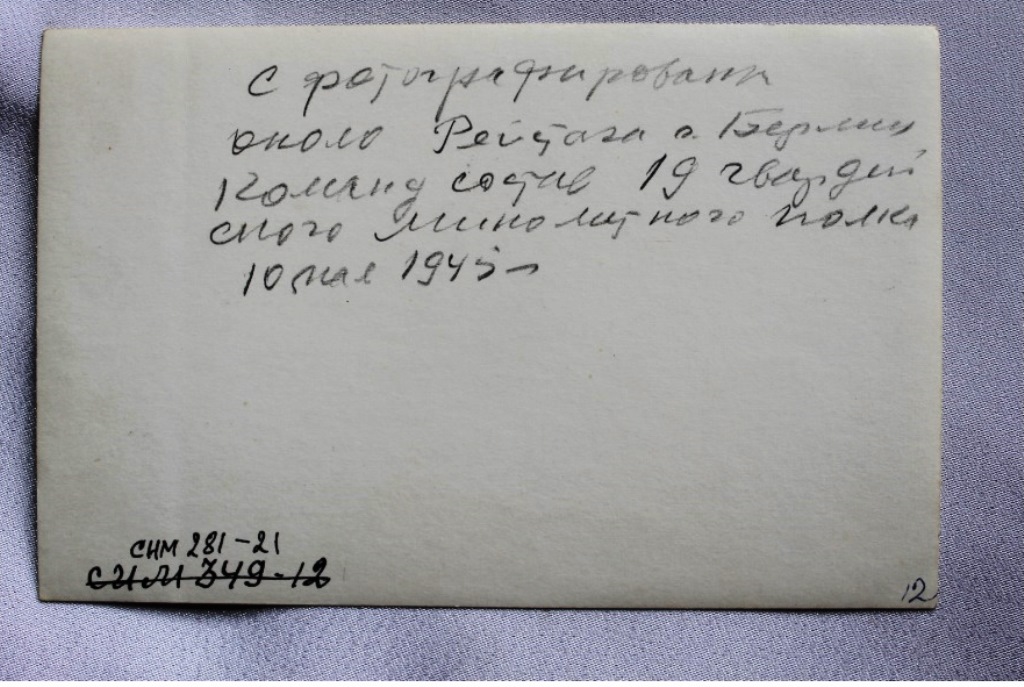 С фотографировани
около Рейстага г. Берлин
Команд состав 19 гвардей
ского минометного полка
10 мая 1945 г
СНМ 281-21
СИМ 349-12
12